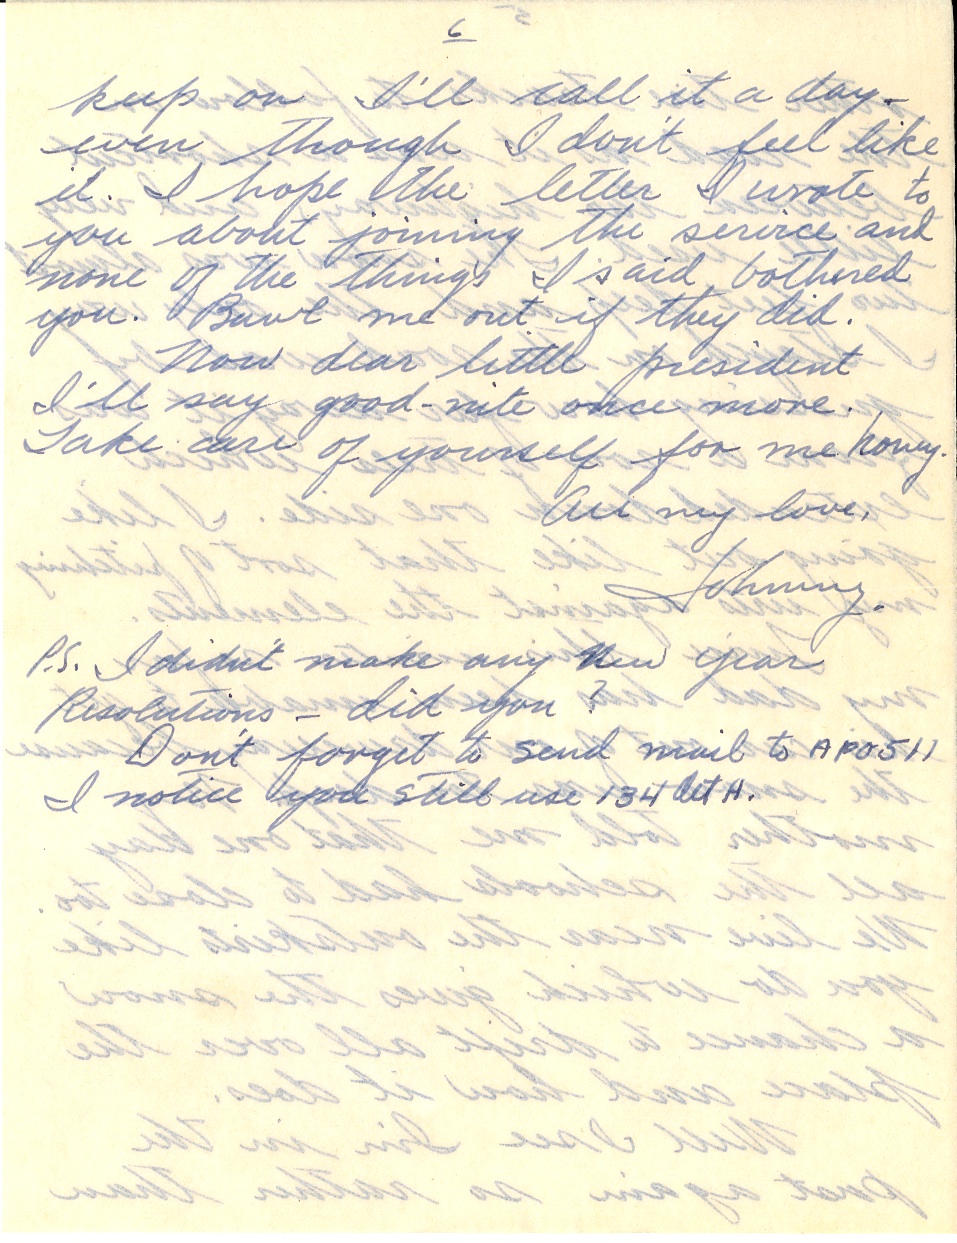 6
keep on I'll call it a day -
even though I don't feel like
it. I hope the letter I wrote to
you about joining the service and
none of the things I said bothered
you. Bawl me out if they did.
Now dear little president
I'll say good-nite once more.
Take care of yourself for me honey.
All my love,
Johnny.
P.S. I didn't make any New year
Resolutions - did you?
Don't forget to send mail to APO 511
I notice you still use 134 Det A.